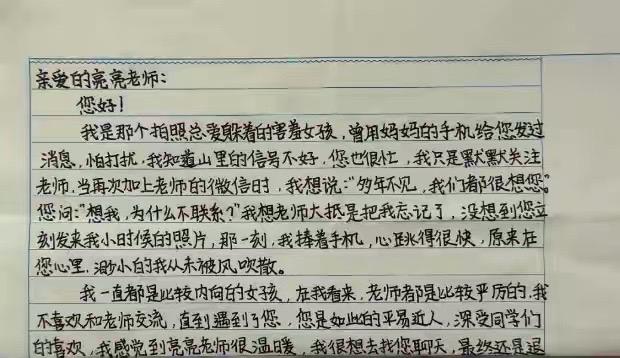 亲爱的亮亮老师：
您好！
我是那个拍照总爱躲着的害羞女孩，曾用妈妈的手机给您发过
消息，怕打扰，我知道山里的信号不好，您也很忙，我只是默默关注
老师．当再次加上老师的微信时，我想说：“多年不见，我们都很想您。”
您问：“想我，为什么不联系？”我想老师大抵是把我忘记了，没想到您立
刻发来我小时候的照片，那一刻，我捧着手机，心跳得很快，原来在
您心里，渺小的我从未被风吹散。
我一直都是比较内向的女孩，在我看来，老师都是比较严厉的，我
不喜欢和老师交流，直到遇到了您，您是如此的平易近人，深受同学们
的喜欢，我感觉到亮亮老师很温暖，我很想去找您聊天，最终还是